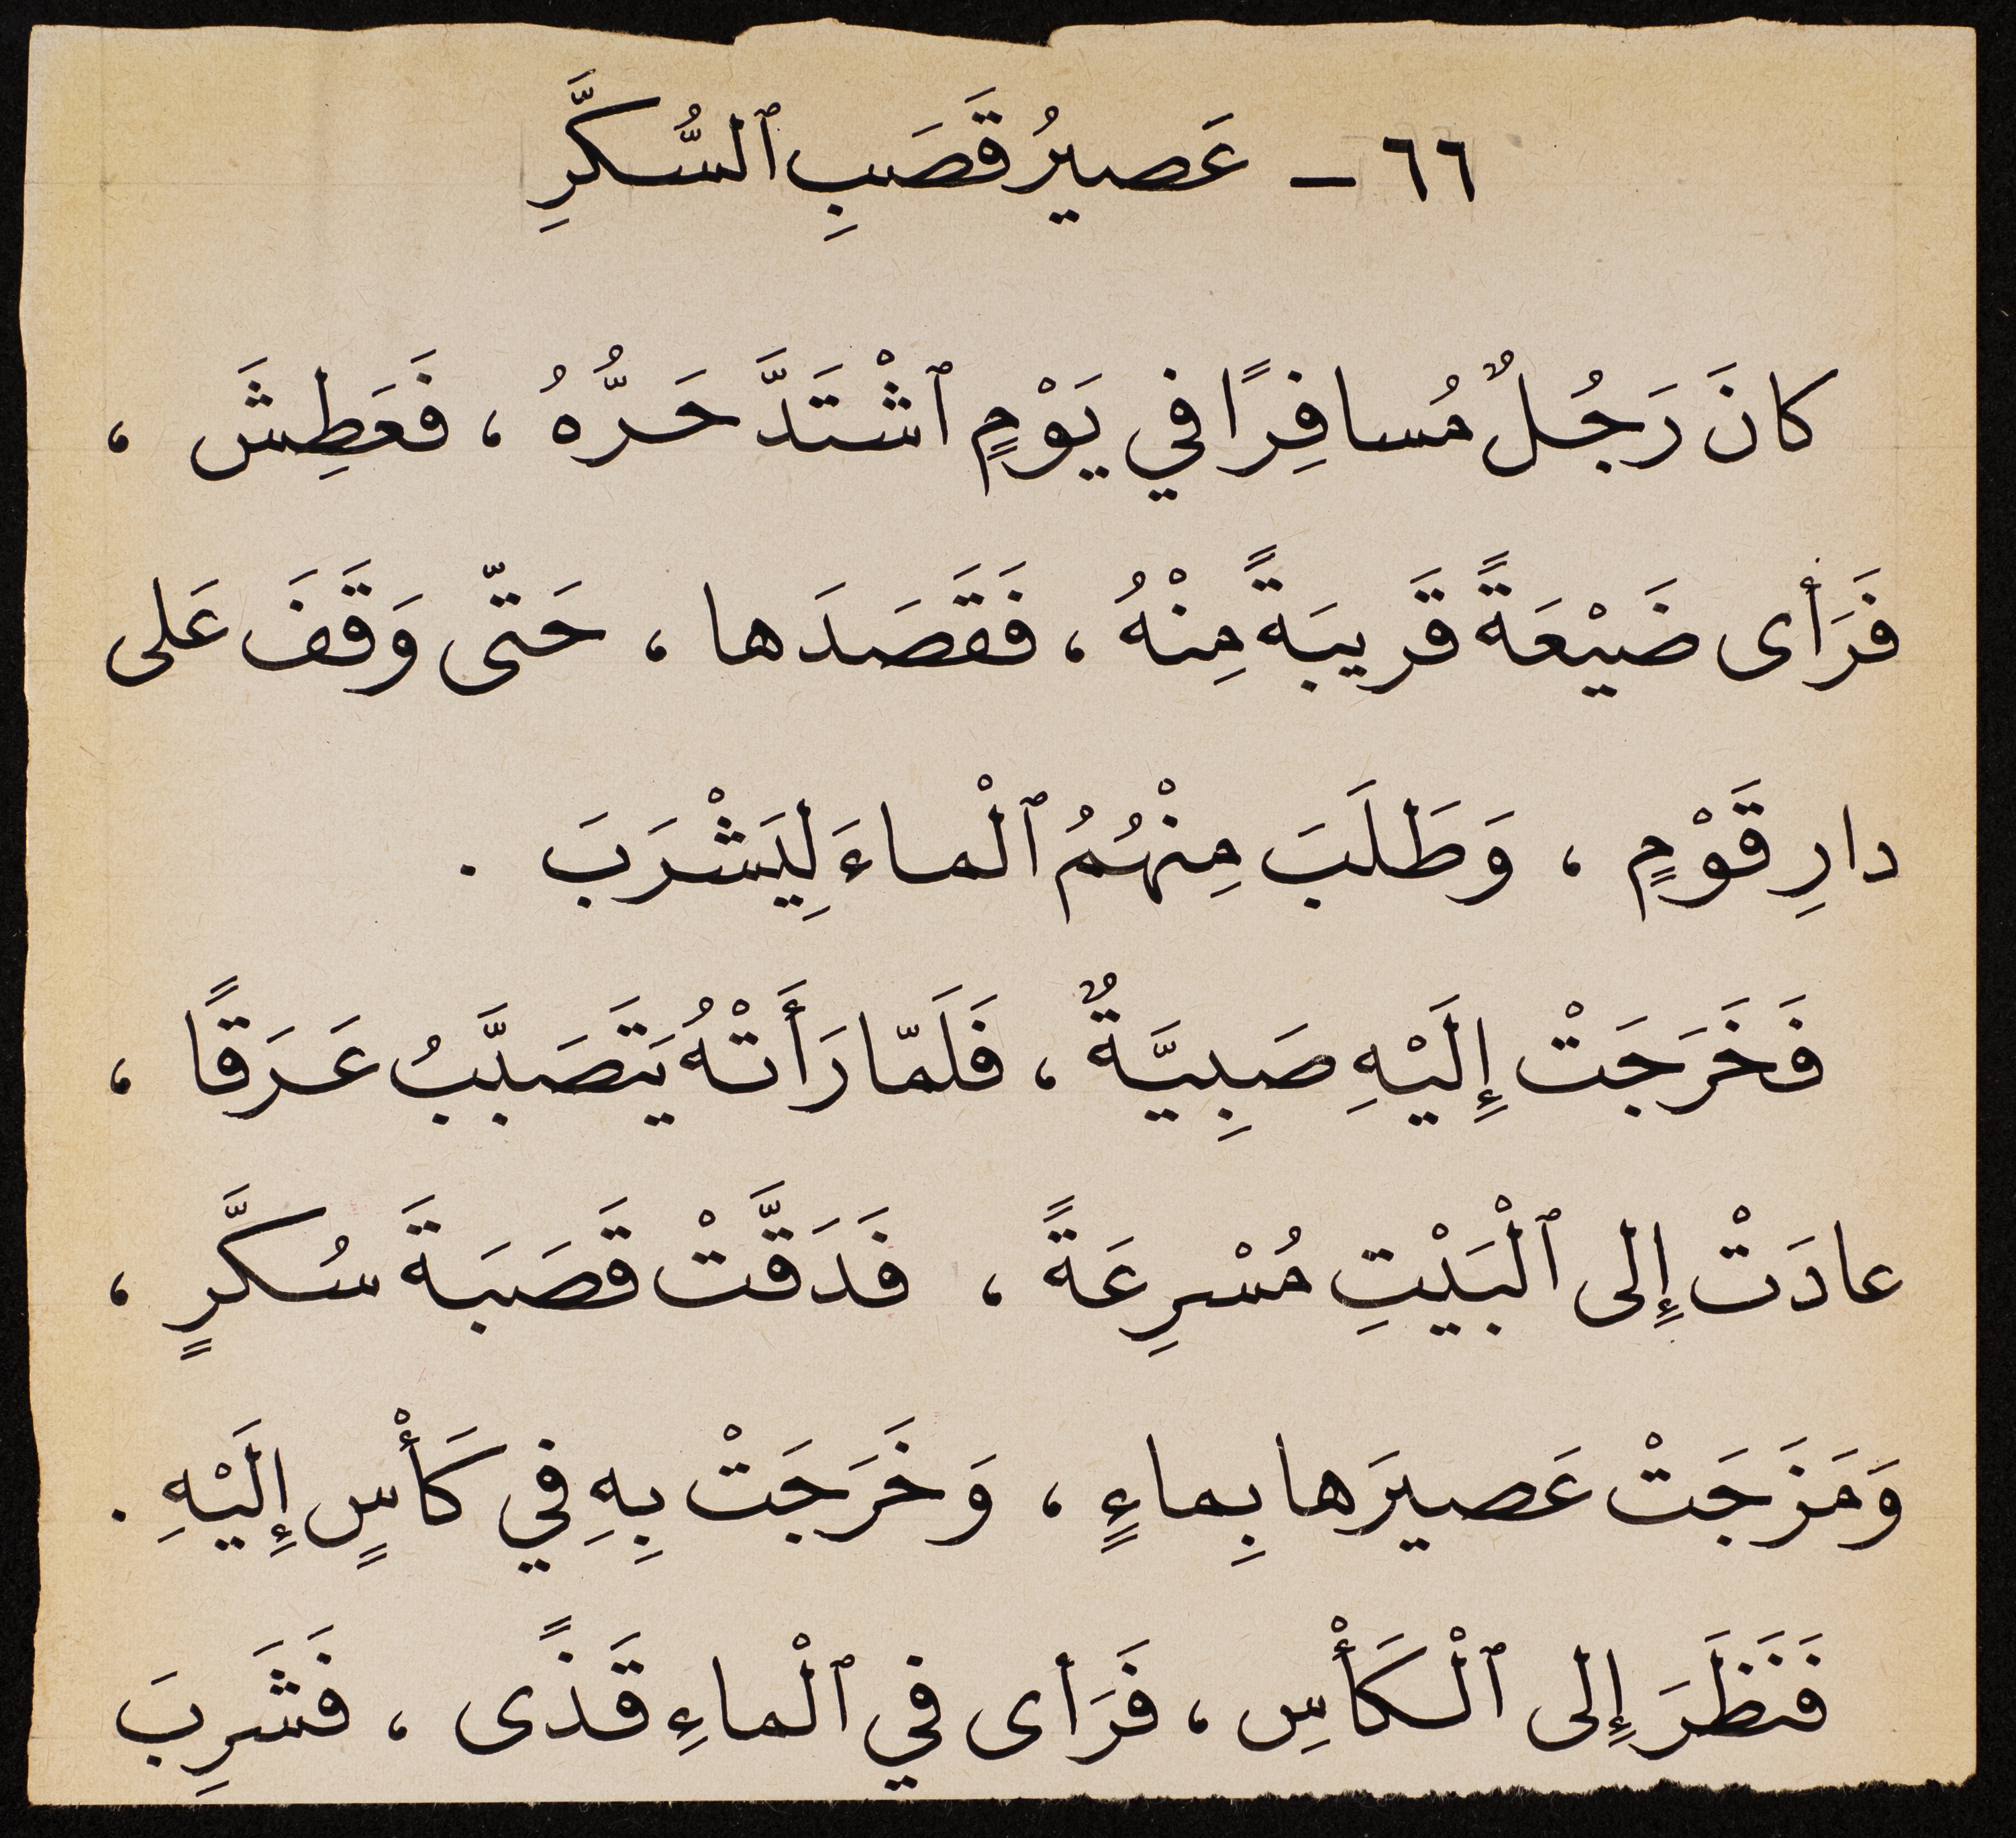 ٦٦ - عَصيرُ قَصَبِ ٱلسُّكَّرِ
كانَ رَجُلٌ مُسافِرًا في يَوْمٍ ٱشْتَدَّ حَرُّهُ ، فَعَطِشَ ،
فَرَأى ضَيْعَةً قَريبَةً مِنْهُ ، فَقَصَدَها ، حَتّى وَقَفَ عَلى
دارِ قَوْمٍ ، وَطَلَبَ مِنْهُمُ ٱلْماءَ لِيَشْرَبَ .
فَخَرَجَتْ إِلَيْهِ صَبِيَّةٌ ، فَلَمّا رَأَتْهُ يَتَصَبَّبُ عَرَقًا ،
عادَتْ إِلى ٱلْبَيْتِ مُسْرِعَةً ، فَدَقَّتْ قَصَبَةَ سُكَّرٍ ،
وَمَزَجَتْ عَصيرَها بِماءٍ ، وَخَرَجَتْ بِهِ في كَأْسٍ إِلَيْهِ .
فَنَظَرَ إِلى ٱلْكَأْسِ ، فَرَأى في ٱلْماءِ قَذًى ، فَشَرِبَ